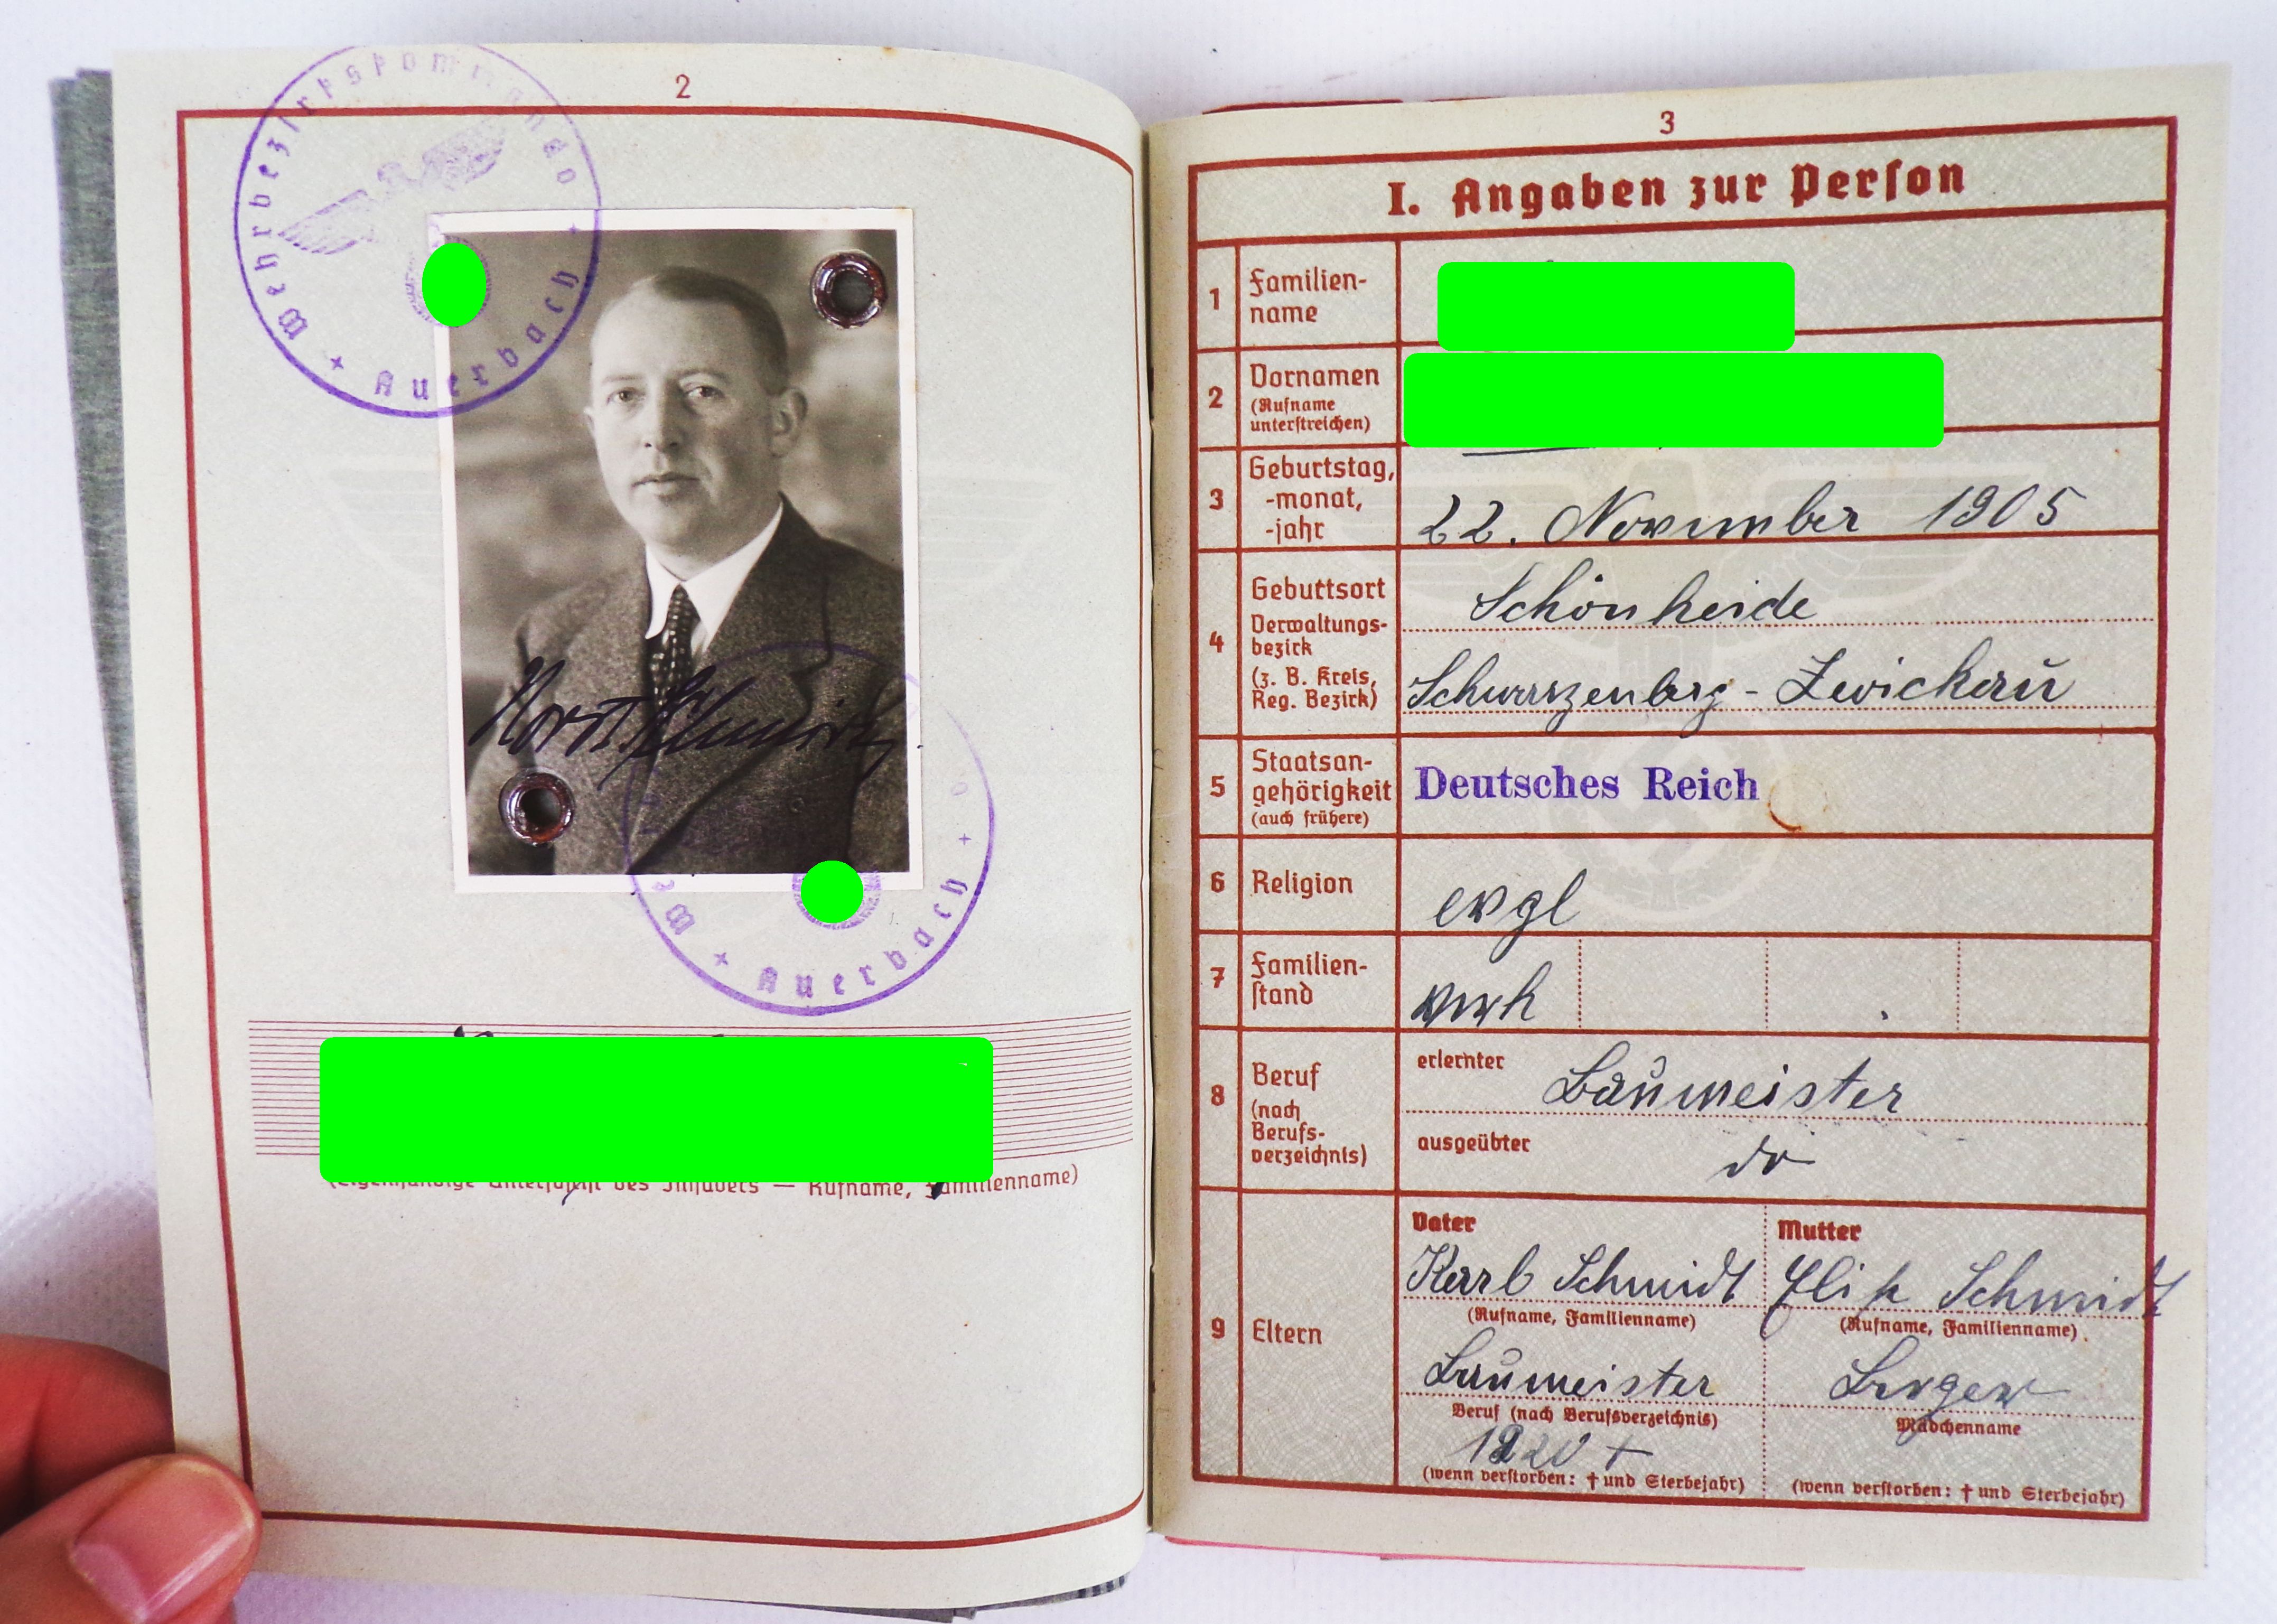 2
Wehrbezirkskommando
Auerbach
Horst Schmidt
Auerbach
(Eigenhändige Unterschrift des Inhabers — Rufname, Familienname)
3
I. Angaben zur Person
1 Familien-
name
2 Vornamen
(Rufname
unterstreichen)
3 Geburtstag,
-monat,
-jahr
22. November 1905
4 Geburtsort
Schönheide
Verwaltungs-
bezirk
(z. B. Kreis,
Reg. Bezirk)
Schwarzenberg - Zwickau
5 Staatsan-
gehörigkeit
(auch frühere)
Deutsches Reich
6 Religion
evgl
7 Familien-
stand
verh
8 Beruf
(nach
Berufs-
verzeichnis)
erlernter
Baumeister
ausgeübter
do
9 Eltern
Vater
Karl Schmidt
(Rufname, Familienname)
Baumeister
Beruf (nach Berufsverzeichnis)
(wenn verstorben: † und Sterbejahr)
Mutter
Schmidt
(Rufname, Familienname)
Mädchenname
(wenn verstorben: † und Sterbejahr)